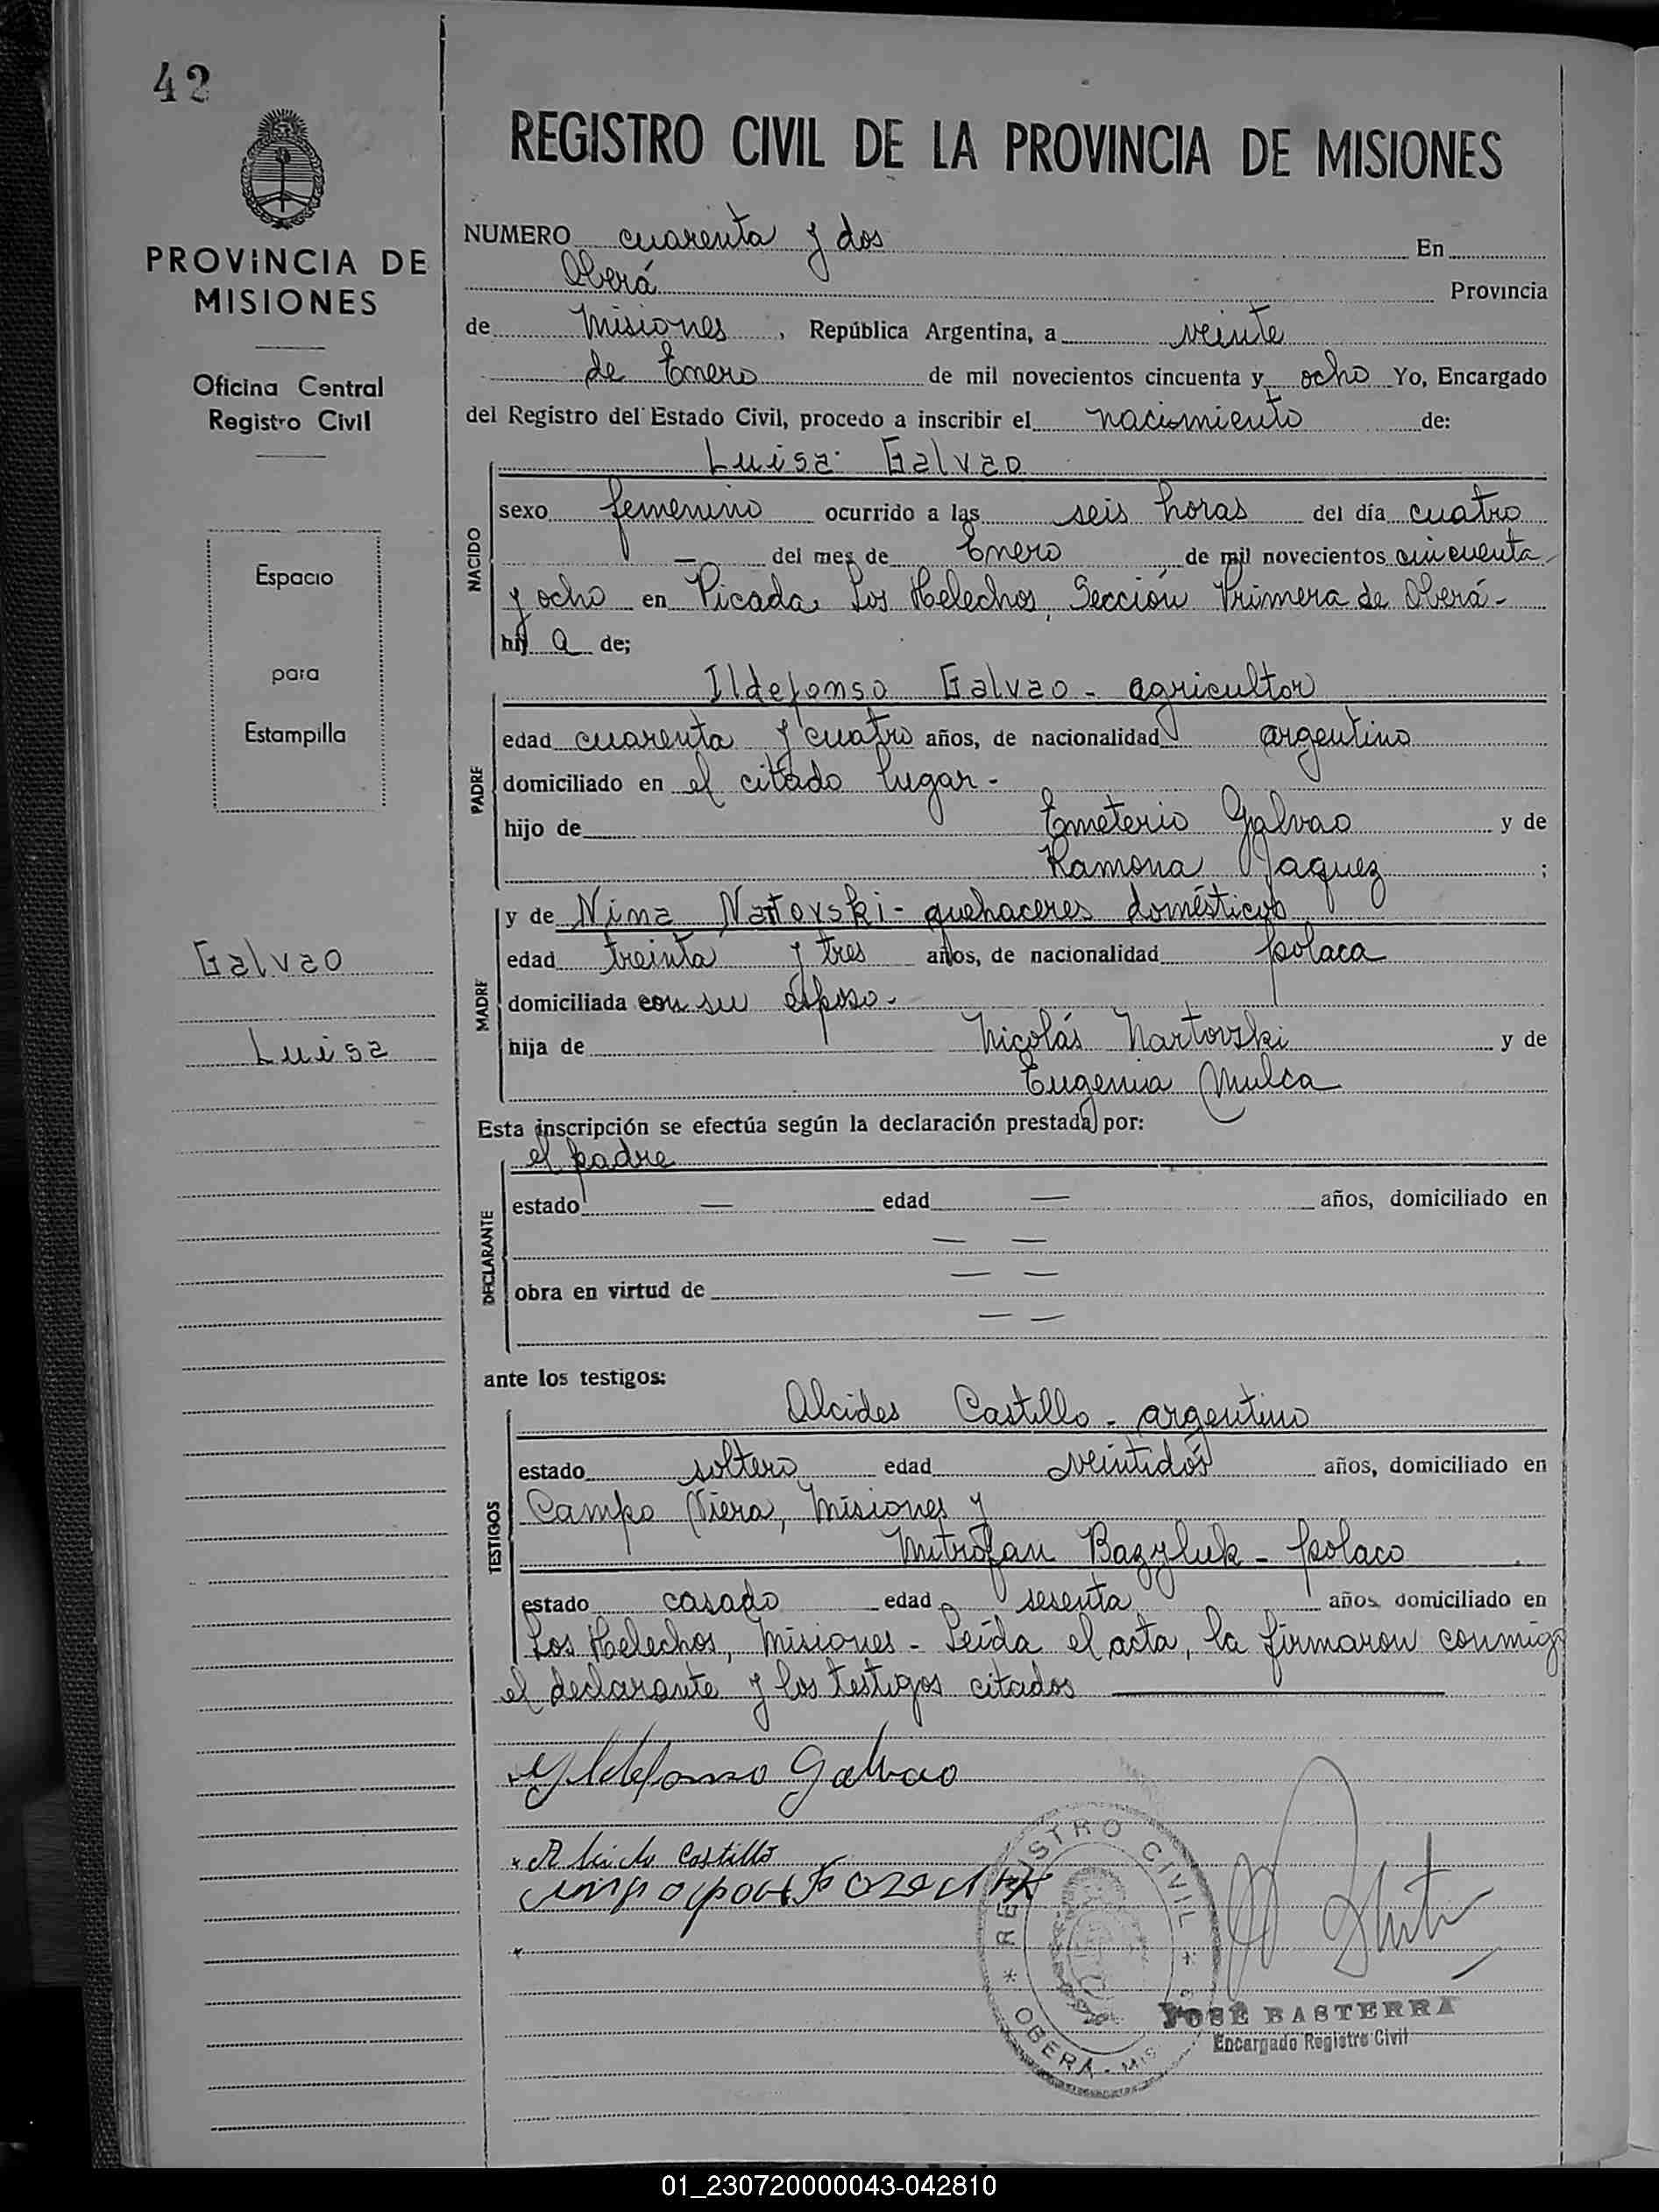 42
PROVINCIA DE
MISIONES
Oficina Central
Registro Civil
Espacio
para
Estampilla
Galvao
Luisa
REGISTRO CIVIL DE LA PROVINCIA DE MISIONES
NUMERO cuarenta y dos En
Oberá Provincia
de Misiones, República Argentina, a veinte
de Enero de mil novecientos cincuenta y ocho Yo, Encargado
del Registro del Estado Civil, procedo a inscribir el nacimiento de:
Luisa Galvao
NACIDO
sexo femenino ocurrido a las seis horas del día cuatro
— del mes de Enero de mil novecientos cincuenta
y ocho en Picada Los Helechos, Sección Primera de Oberá-
hij a de;
PADRE
Ildefonso Galvao - agricultor
edad cuarenta y cuatro años, de nacionalidad argentino
domiciliado en el citado lugar -
hijo de Emeterio Galvao y de
Ramona Jaquez ;
MADRE
y de Nina Nartovski - quehaceres domésticos
edad treinta y tres años, de nacionalidad polaca
domiciliada con su esposo -
hija de Nicolás Nartovski y de
Eugenia Mulca
Esta inscripción se efectúa según la declaración prestada por:
DECLARANTE
el padre
estado — edad — años, domiciliado en
— —
— —
obra en virtud de
— —
ante los testigos:
TESTIGOS
Alcides Castillo - argentino
estado soltero edad veintidós años, domiciliado en
Campo Viera, Misiones y
Mitrofan Bazyluk - polaco
estado casado edad sesenta años domiciliado en
Los Helechos, Misiones - Leída el acta, la firmaron conmigo
el declarante y los testigos citados
Yldefonso Galvao
Castillo
REGISTRO CIVIL
* OBERA - MIS *
JOSÉ BASTERRA
Encargado Registro Civil
01_230720000043-042810